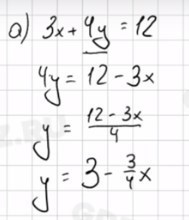 а) 3x + 4y = 12
4y = 12 - 3x
y = \frac{12 - 3x}{4}
y = 3 - \frac{3}{4}x